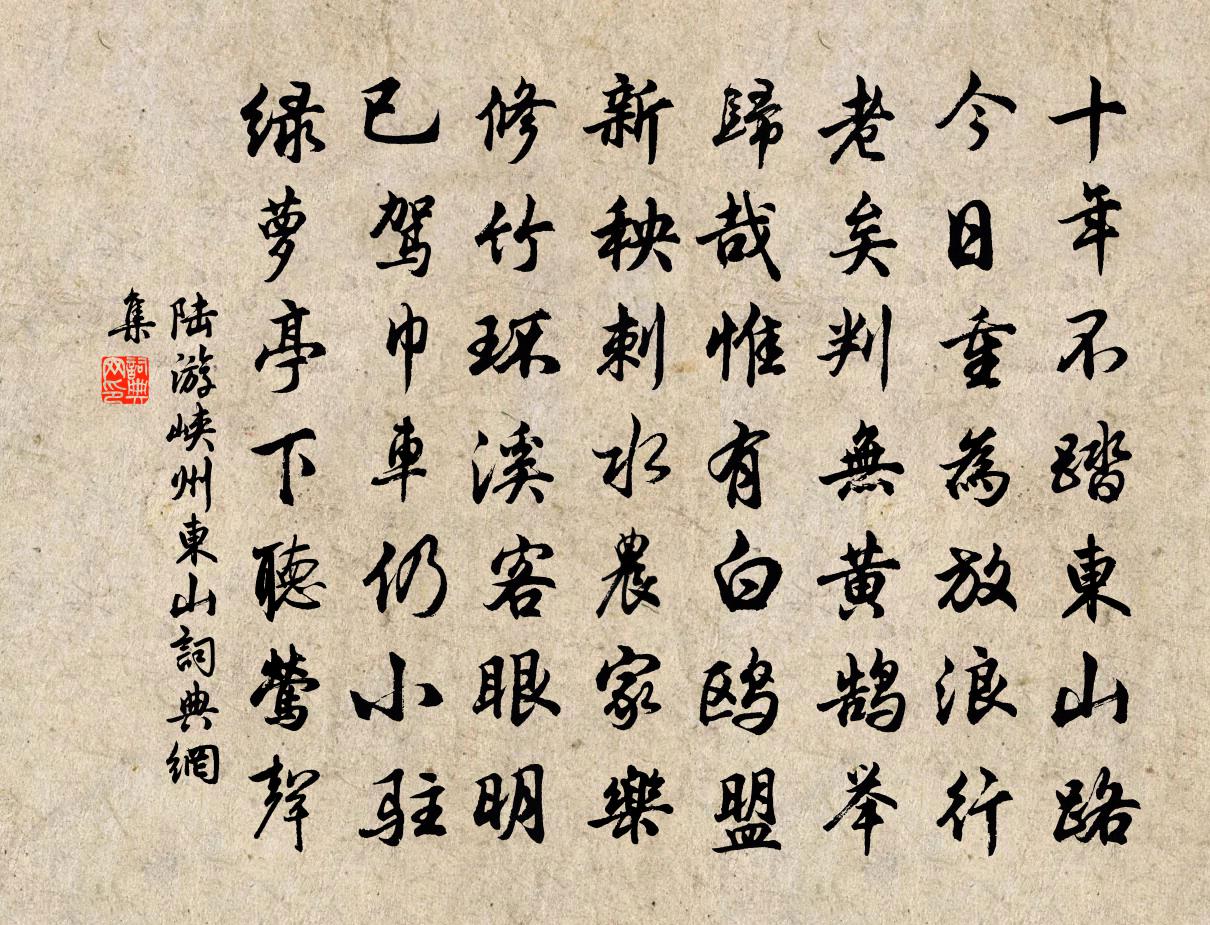 十年不踏東山路
今日重為放浪行
老矣判無黄鹄举
歸哉惟有白鸥盟
新秧刺水農家樂
修竹环溪客眼明
已駕巾車仍小駐
绿萝亭下聽莺聲
陆游峡州東山詞典網
集
詞典
网印